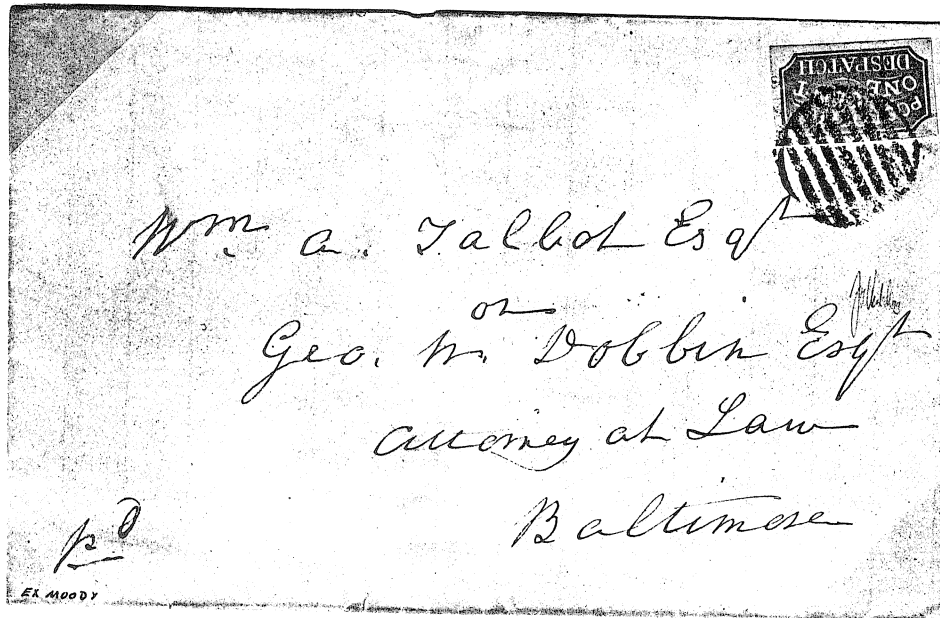 DESPATCH
ONE
Wm. A. Talbot Esqr
or
Geo. W. Dobbin Esqr
Attorney at Law
Baltimore
pd
EX MOODY